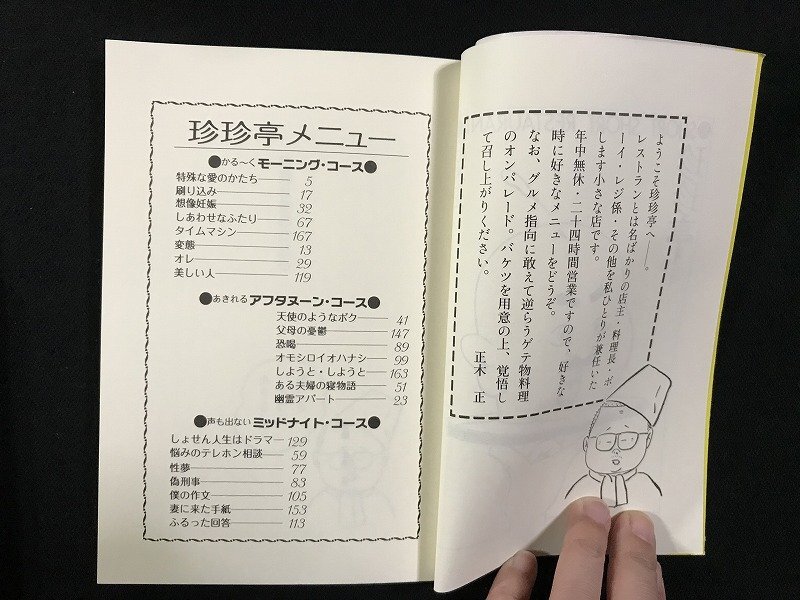 ようこそ珍珍亭へ――。
レストランとは名ばかりの店主・料理長・ボ
ーイ・レジ係・その他を私ひとりが兼任いた
します小さな店です。
年中無休・二十四時間営業ですので、好きな
時に好きなメニューをどうぞ。
なお、グルメ指向に敢えて逆らうゲテ物料理
のオンパレード。バケツを用意の上、覚悟し
て召し上がりください。
正木 正
珍珍亭メニュー
●かる〜くモーニング・コース●
特殊な愛のかたち 5
刷り込み 17
想像妊娠 32
しあわせなふたり 67
タイムマシン 167
変態 13
オレ 29
美しい人 119
●あきれるアフタヌーン・コース●
天使のようなボク 41
父母の憂鬱 147
恐喝 89
オモシロイオハナシ 99
しようと・しようと 163
ある夫婦の寝物語 51
幽霊アパート 23
●声も出ないミッドナイト・コース●
しょせん人生はドラマ 129
悩みのテレホン相談 59
性夢 77
偽刑事 83
僕の作文 105
妻に来た手紙 153
ふるった回答 113